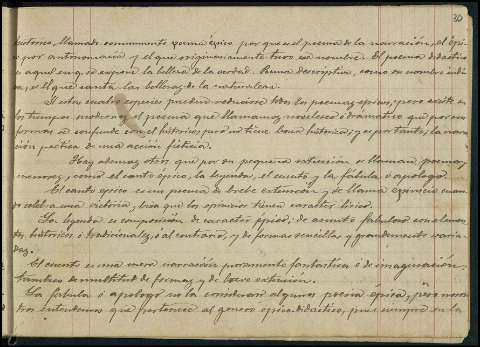 30
histórico, llamado comunmente poema épico por que es el poema de la narración, el épi-
co por antonomasia y el que originariamente tuvo ese nombre. El poema didáctico
es aquel en q. se expone la belleza de la verdad. Poema descriptivo, como su nombre indi-
ca, es el que canta las bellezas de la naturaleza.
A estas cuatro especies pueden reducirse todos los poemas épicos, pero existe en
los tiempos modernos el poema que llamamos novelesco o dramático que por su
forma se confunde con el histórico, pero no tiene base histórica, y es por tanto, la narra-
ción poética de una acción ficticia.
Hay ademas otros que por su pequeña extensión se llaman poemas
menores, como el canto épico, la leyenda, el cuento y la fábula o apólogo.
El canto épico es un poema de breve extensión y se llama epinicio cuan-
do celebra una victoria, bien que los epinicios tienen carácter lírico.
La leyenda es composición de carácter épico, de asunto fabuloso con elemen-
tos históricos o tradicionales, o al contrario, y de formas sencillas y grandemente varia-
das.
El cuento es una mera narración puramente fantástica o de imaginación,
también de multitud de formas y de breve extensión.
La fábula o apólogo no la consideran algunos poesía épica, pero noso-
tros entendemos que pertenece al género épico didáctico, pues siempre en la